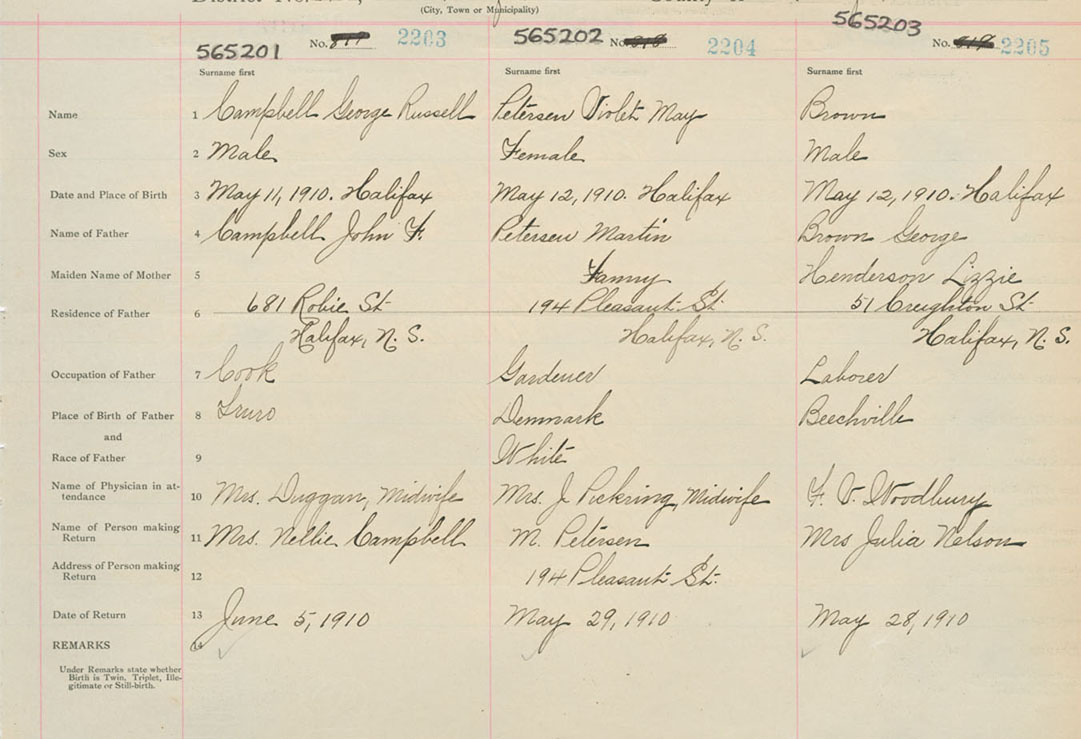 (City, Town or Municipality)
565201 No. 2203 565202 No. 2204 565203 No. 2205
Surname first Surname first Surname first
Name 1 Campbell George Russell Petersen Violet May Brown
Sex 2 Male Female Male
Date and Place of Birth 3 May 11, 1910. Halifax May 12, 1910. Halifax May 12, 1910. Halifax
Name of Father 4 Campbell John F. Petersen Martin Brown George
Maiden Name of Mother 5 Fanny Henderson Lizzie
Residence of Father 6 681 Robie St 194 Pleasant St. 51 Creighton St
Halifax, N. S. Halifax, N. S. Halifax, N. S.
Occupation of Father 7 Cook Gardener Laborer
Place of Birth of Father 8 Truro Denmark Beechville
and
Race of Father 9 White
Name of Physician in at-
tendance 10 Mrs. Duggan, Midwife Mrs. J. Pickring, Midwife F. V. Woodbury
Name of Person making
Return 11 Mrs. Nellie Campbell M. Petersen Mrs Julia Nelson
Address of Person making
Return 12 194 Pleasant St.
Date of Return 13 June 5, 1910 May 29, 1910 May 28, 1910
REMARKS 14
Under Remarks state whether
Birth is Twin, Triplet, Ille-
gitimate or Still-birth.